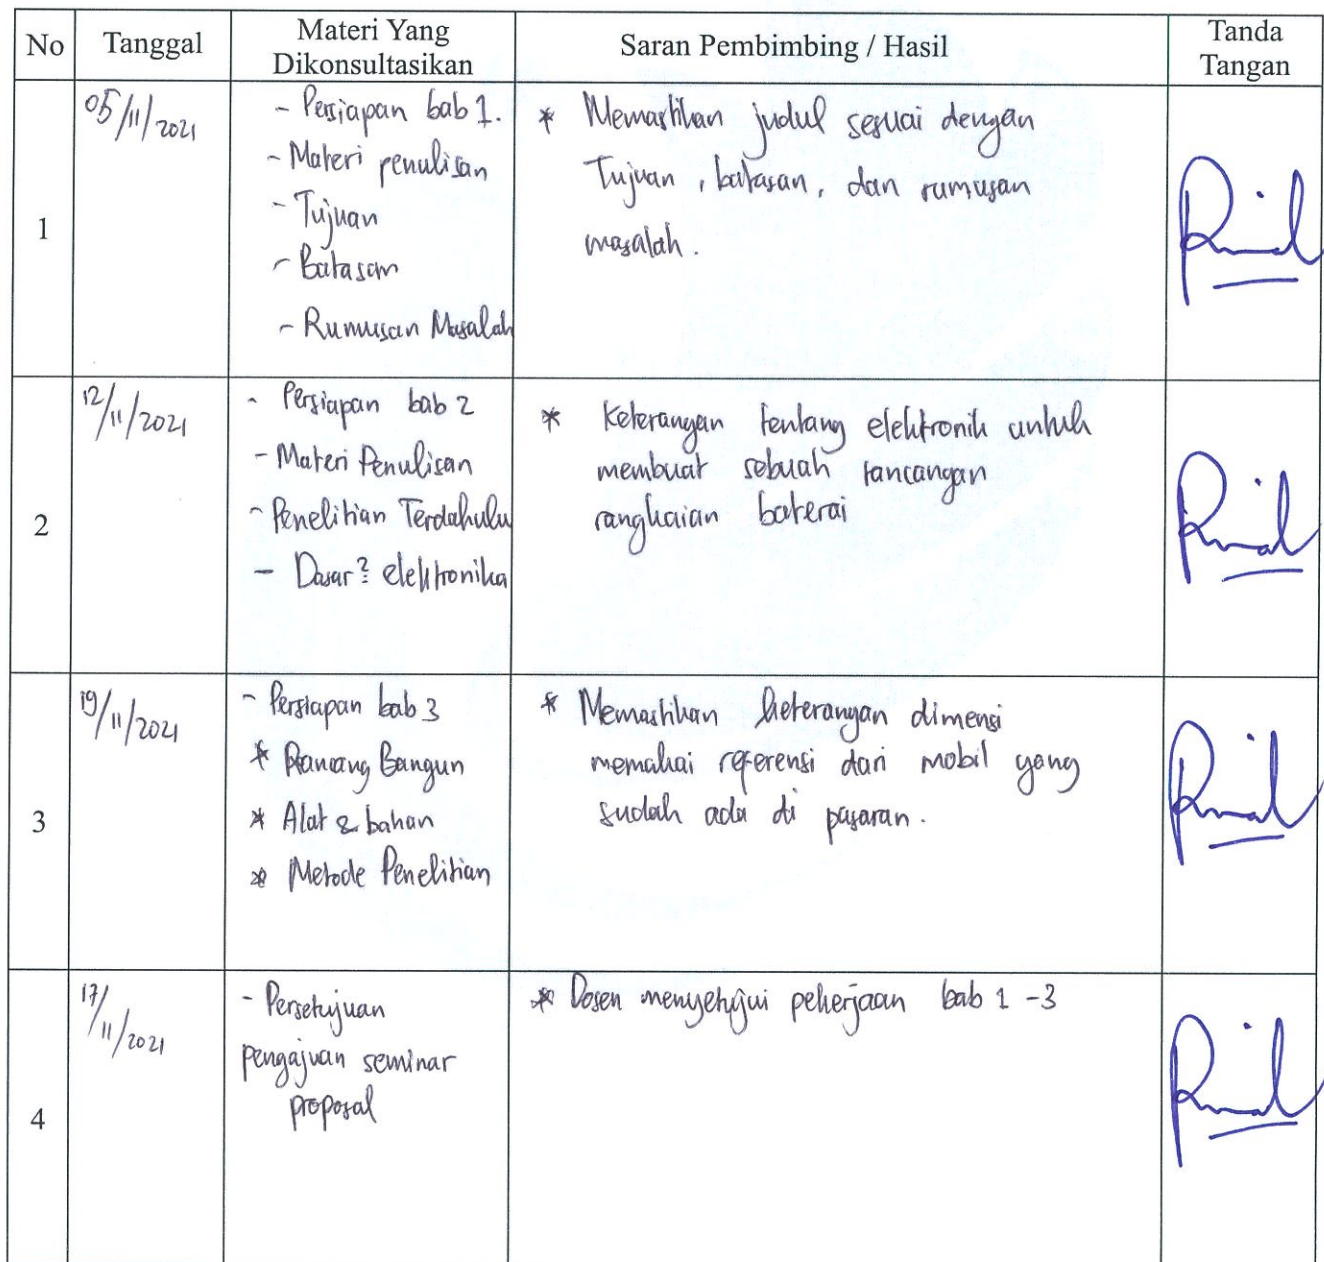 No Tanggal Materi Yang Dikonsultasikan Saran Pembimbing / Hasil Tanda Tangan
1
05/11/2021
- Persiapan bab 1.
- Materi penulisan
- Tujuan
- Batasan
- Rumusan Masalah
* Memastikan judul sesuai dengan
Tujuan, batasan, dan rumusan
masalah.
2
12/11/2021
- Persiapan bab 2
- Materi Penulisan
- Penelitian Terdahulu
- Dasar² elektronika
* Keterangan tentang elektronik untuk
membuat sebuah rancangan
rangkaian baterai
3
19/11/2021
- Persiapan bab 3
* Rancang Bangun
* Alat & bahan
* Metode Penelitian
* Memastikan keterangan dimensi
memakai referensi dari mobil yang
sudah ada di pasaran.
4
17/11/2021
- Persetujuan
pengajuan seminar
proposal
* Dosen menyetujui pekerjaan bab 1 -3